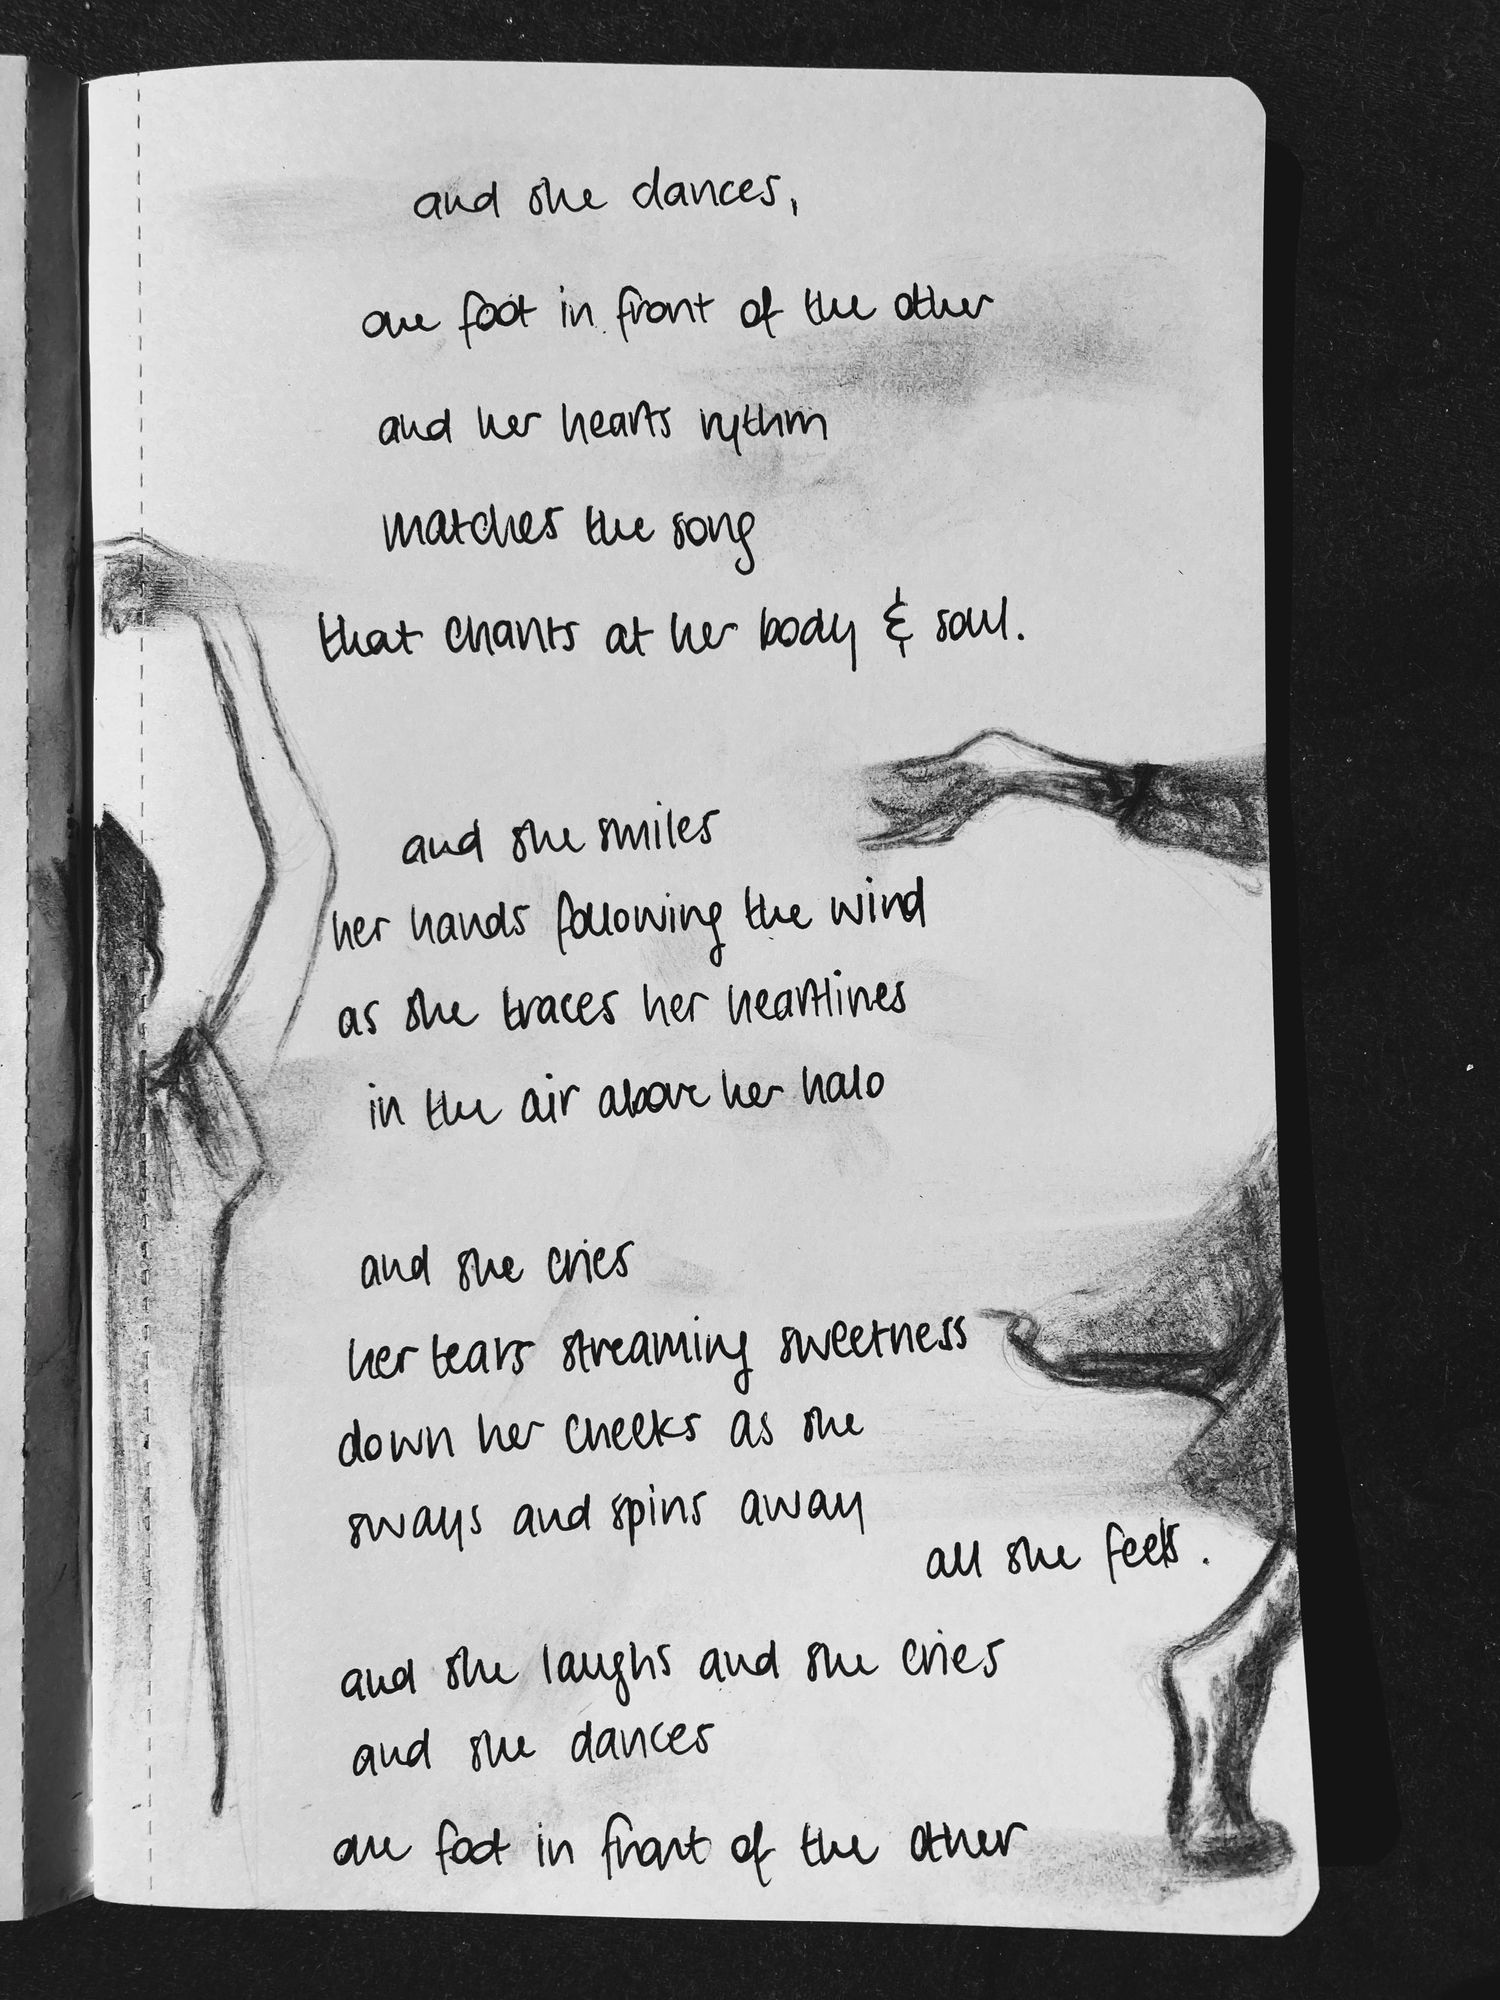 and she dances,
one foot in front of the other
and her hearts rythm
matches the song
that chants at her body & soul.
and she smiles
her hands following the wind
as she traces her heartlines
in the air above her halo
and she cries
her tears streaming sweetness
down her cheeks as she
sways and spins away
all she feels.
and she laughs and she cries
and she dances
one foot in front of the other